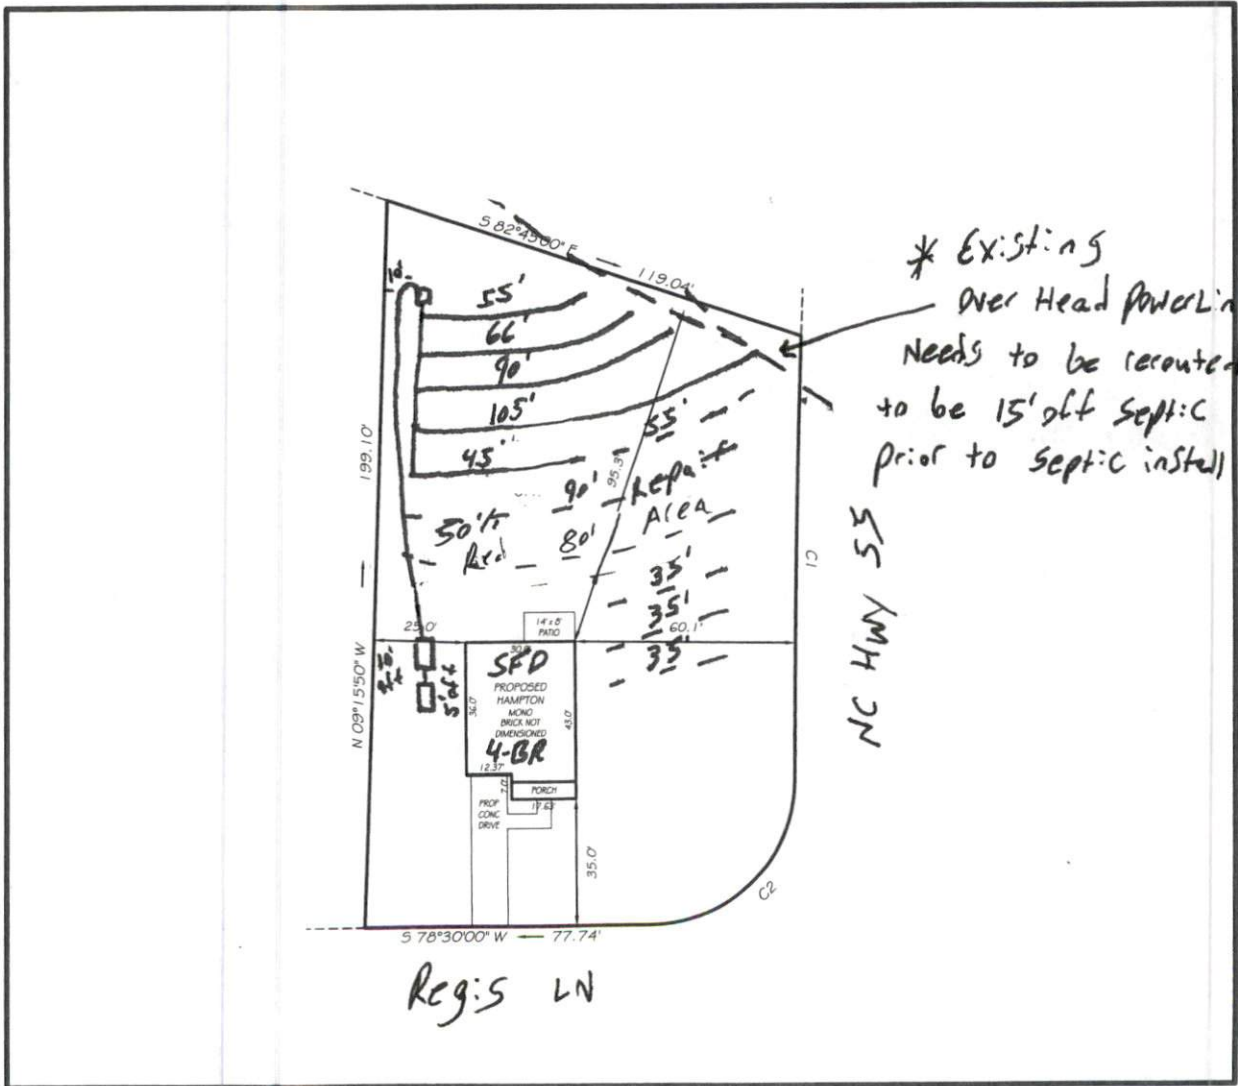 S 82°45'00" E
119.04'
* Existing
Over Head PowerLin
Needs to be reroute
to be 15' off Septic
prior to Septic install
10'
55'
66'
90'
105'
45'
55'
95.3'
90'
Repair
Area
50%
Red
80'
35'
35'
35'
199.10'
N 09°15'50" W
C1
NC HWY 55
25.0'
14'x8'
PATIO
60.1'
30.0'
SFD
PROPOSED
HAMPTON
MONO
BRICK NOT
DIMENSIONED
4-BR
36.0'
43.0'
5' off
12.37'
7.0'
PORCH
17.63'
PROP
CONC
DRIVE
35.0'
C2
S 78°30'00" W
77.74'
Regis LN